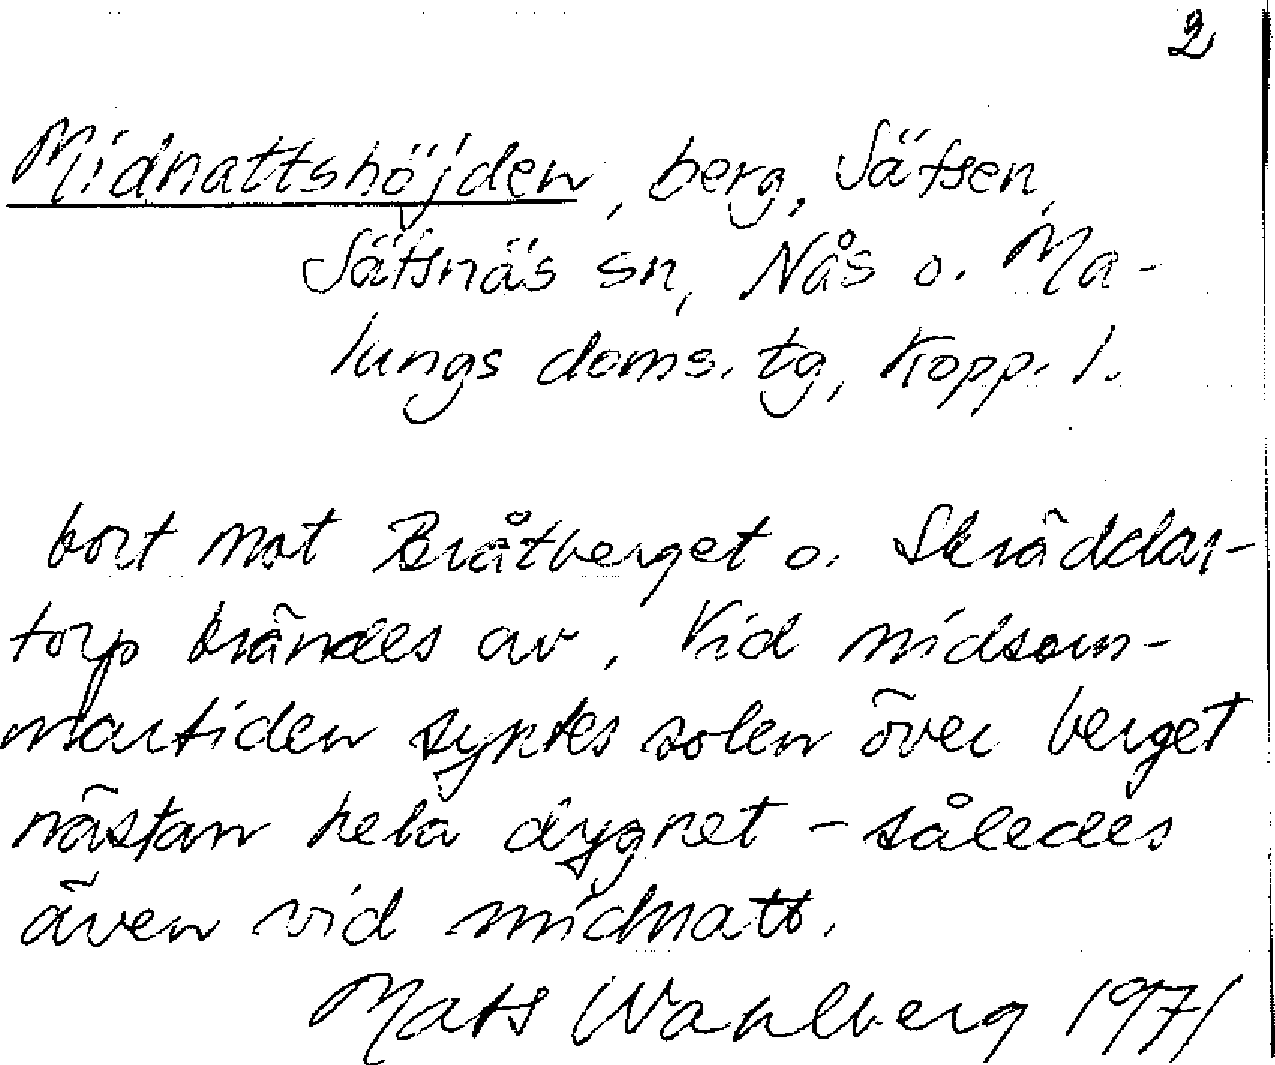 2
Midnattshöjden, berg, Sätsen,
Sätsnäs sn, Nås o. Ma-
lungs doms. tg, Kopp. l.
bort mot Bråtberget o. Skräddar-
torp brändes av. Vid midsom-
martiden syntes solen över berget
nästan hela dygnet - således
även vid midnatt.
Mats Wahlberg 1971